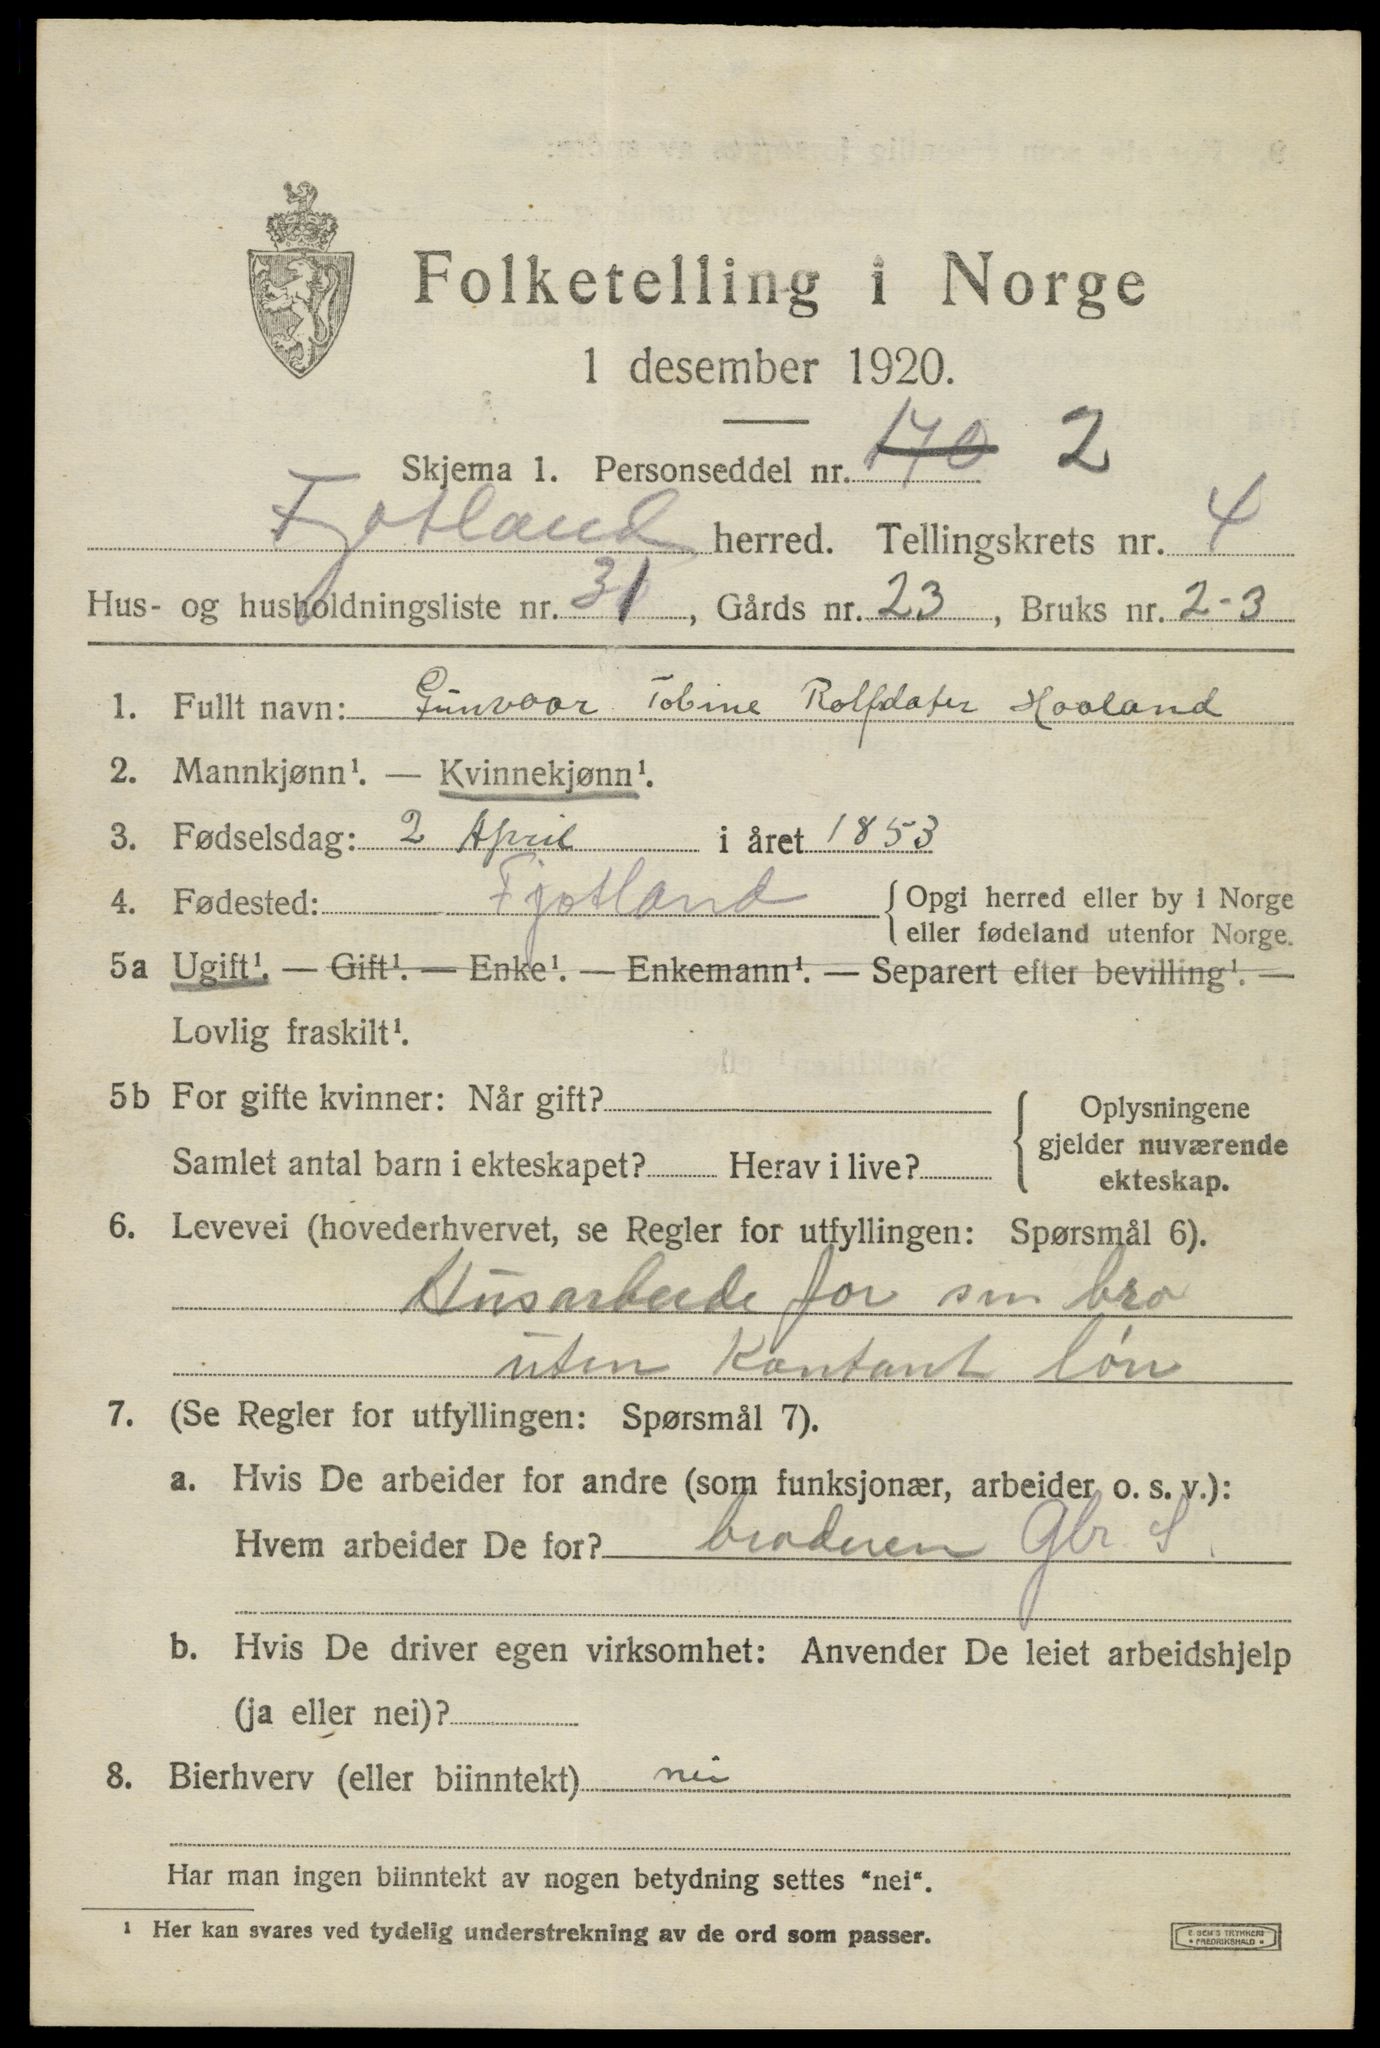 Folketelling i Norge
1 desember 1920.
Skjema 1. Personseddel nr. 170 2
Fjotland herred. Tellingskrets nr. 4
Hus- og husholdningsliste nr. 31, Gårds nr. 23, Bruks nr. 2-3
1. Fullt navn: Gunvaar Tobine Rolfdater Haaland
2. Mannkjønn¹. — Kvinnekjønn¹.
3. Fødselsdag: 2 April i året 1853
4. Fødested: Fjotland { Opgi herred eller by i Norge
eller fødeland utenfor Norge.
5a Ugift¹. — Gift¹. — Enke¹. — Enkemann¹. — Separert efter bevilling¹. —
Lovlig fraskilt¹.
5b For gifte kvinner: Når gift? { Oplysningene
gjelder nuværende
Samlet antal barn i ekteskapet? Herav i live? ekteskap.
6. Levevei (hovederhvervet, se Regler for utfyllingen: Spørsmål 6).
Husarbeide for sin bro
uten kontant løn
7. (Se Regler for utfyllingen: Spørsmål 7).
a. Hvis De arbeider for andre (som funksjonær, arbeider o. s. v.):
Hvem arbeider De for? broderen Gbr. S.
b. Hvis De driver egen virksomhet: Anvender De leiet arbeidshjelp
(ja eller nei)?
8. Bierhverv (eller biinntekt) nei
Har man ingen biinntekt av nogen betydning settes "nei".
¹ Her kan svares ved tydelig understrekning av de ord som passer.
E. SEM'S TRYKKERI
FREDRIKSHALD